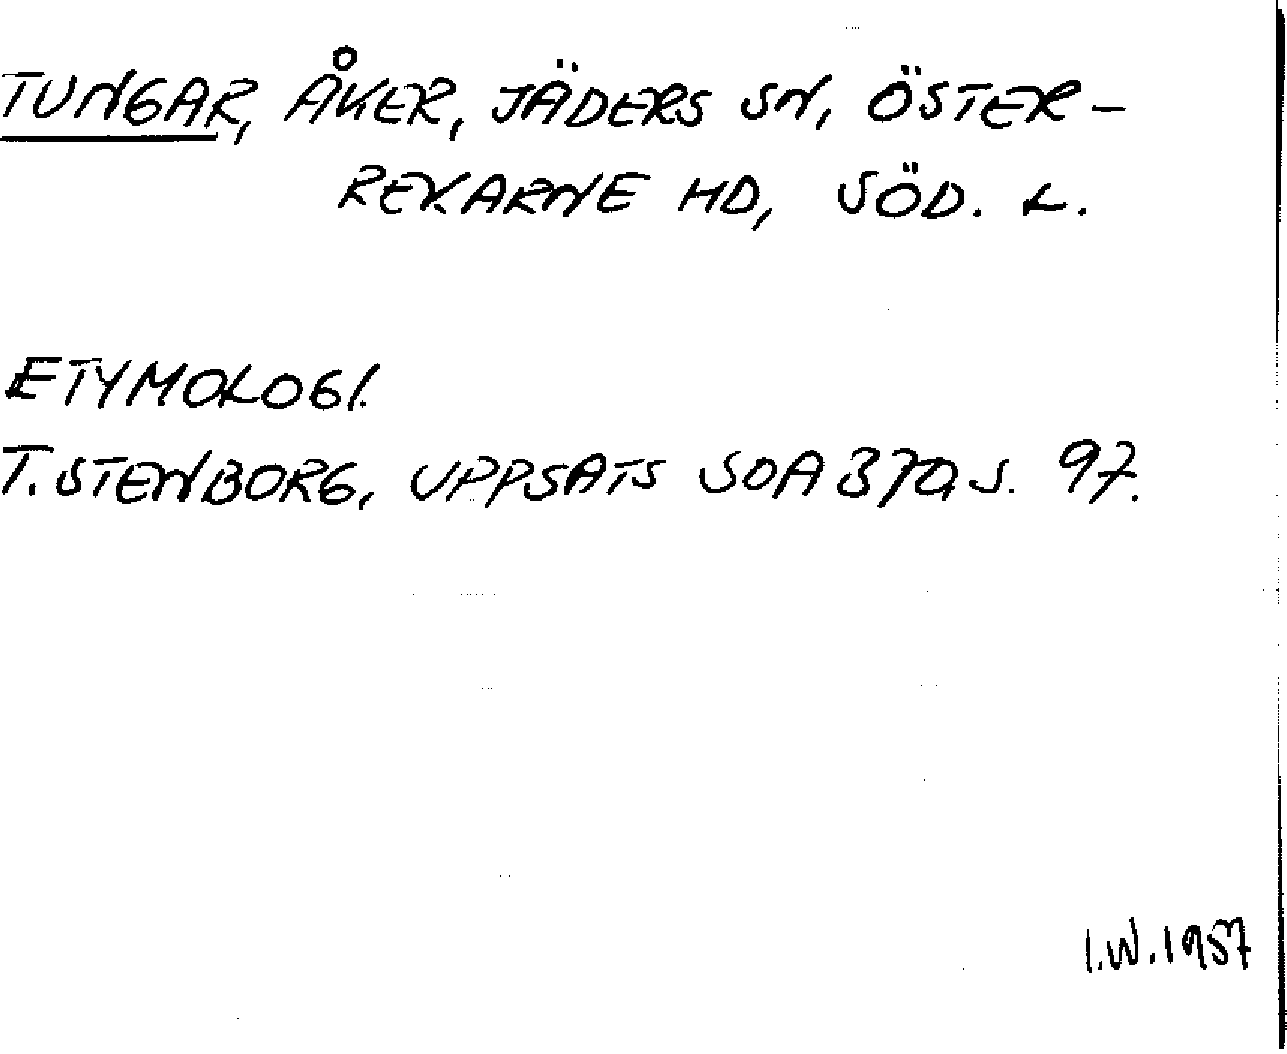 TUNGAR, ÅKER, JÄDERS SN, ÖSTER-
REKARNE HD, SÖD. L.
ETYMOLOGI.
T. STENBORG, UPPSATS SOA 370, S. 97.
I.W. 1957